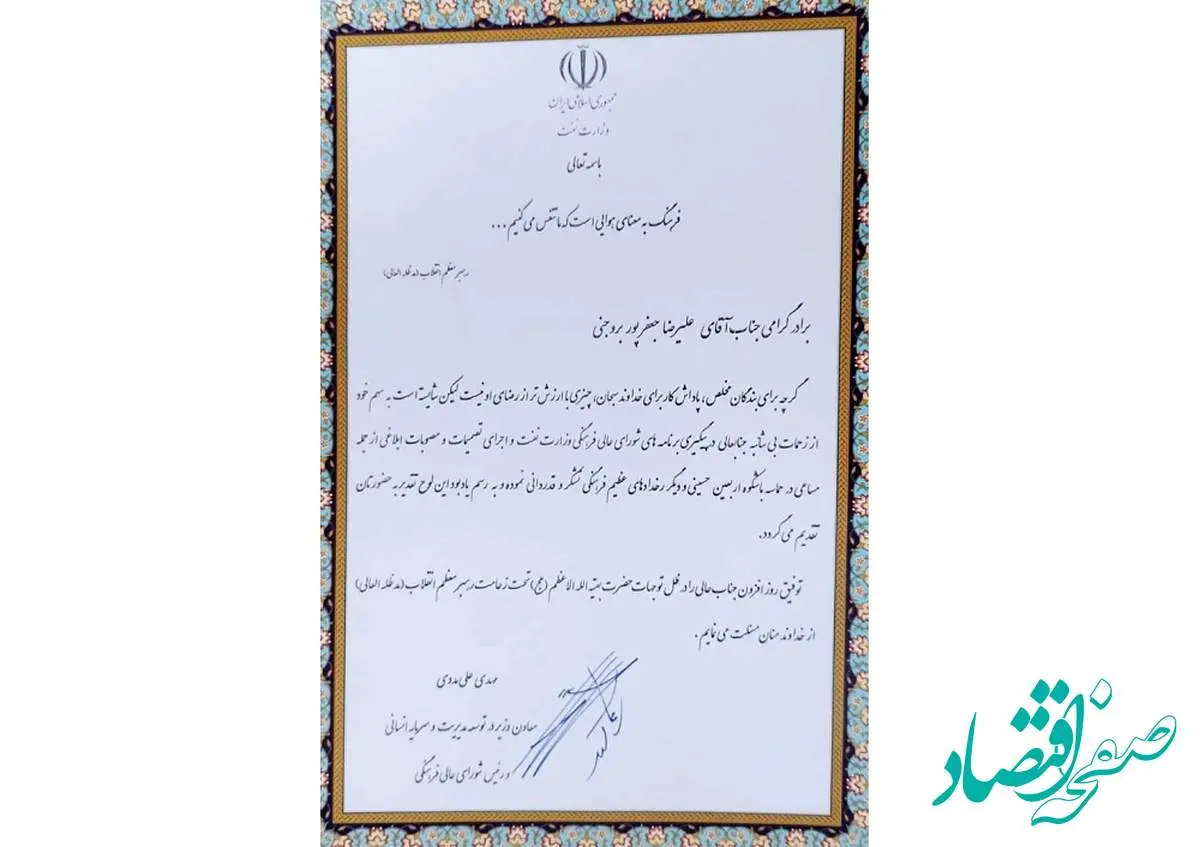 جمهوری اسلامی ایران
وزارت نفت
باسمه تعالی
فرهنگ به معنای هوایی است که ما تنفس می کنیم ...
رهبر معظم انقلاب (مدظله العالی)
برادر گرامی جناب آقای علیرضا جعفرپور بروجنی
گرچه برای بندگان مخلص، پاداش کار برای خداوند سبحان، چیزی با ارزش تر از رضای او نیست لیکن شایسته است به سهم خود
از زحمات بی شائبه جنابعالی در پیگیری برنامه های شورای عالی فرهنگی وزارت نفت و اجرای تصمیمات و مصوبات ابلاغی از جمله
مساعی در حماسه باشکوه اربعین حسینی و دیگر رخدادهای عظیم فرهنگی تشکر و قدردانی نموده و به رسم یادبود این لوح تقدیر به حضورتان
تقدیم می گردد.
توفیق روز افزون جناب عالی را در ظل توجهات حضرت بقیة الله الاعظم (عج) تحت زعامت رهبر معظم انقلاب (مدظله العالی)
از خداوند منان مسئلت می نمایم.
مهدی علی مددی
معاون وزیر در توسعه مدیریت و سرمایه انسانی
و رئیس شورای عالی فرهنگی
صفحه اقتصاد